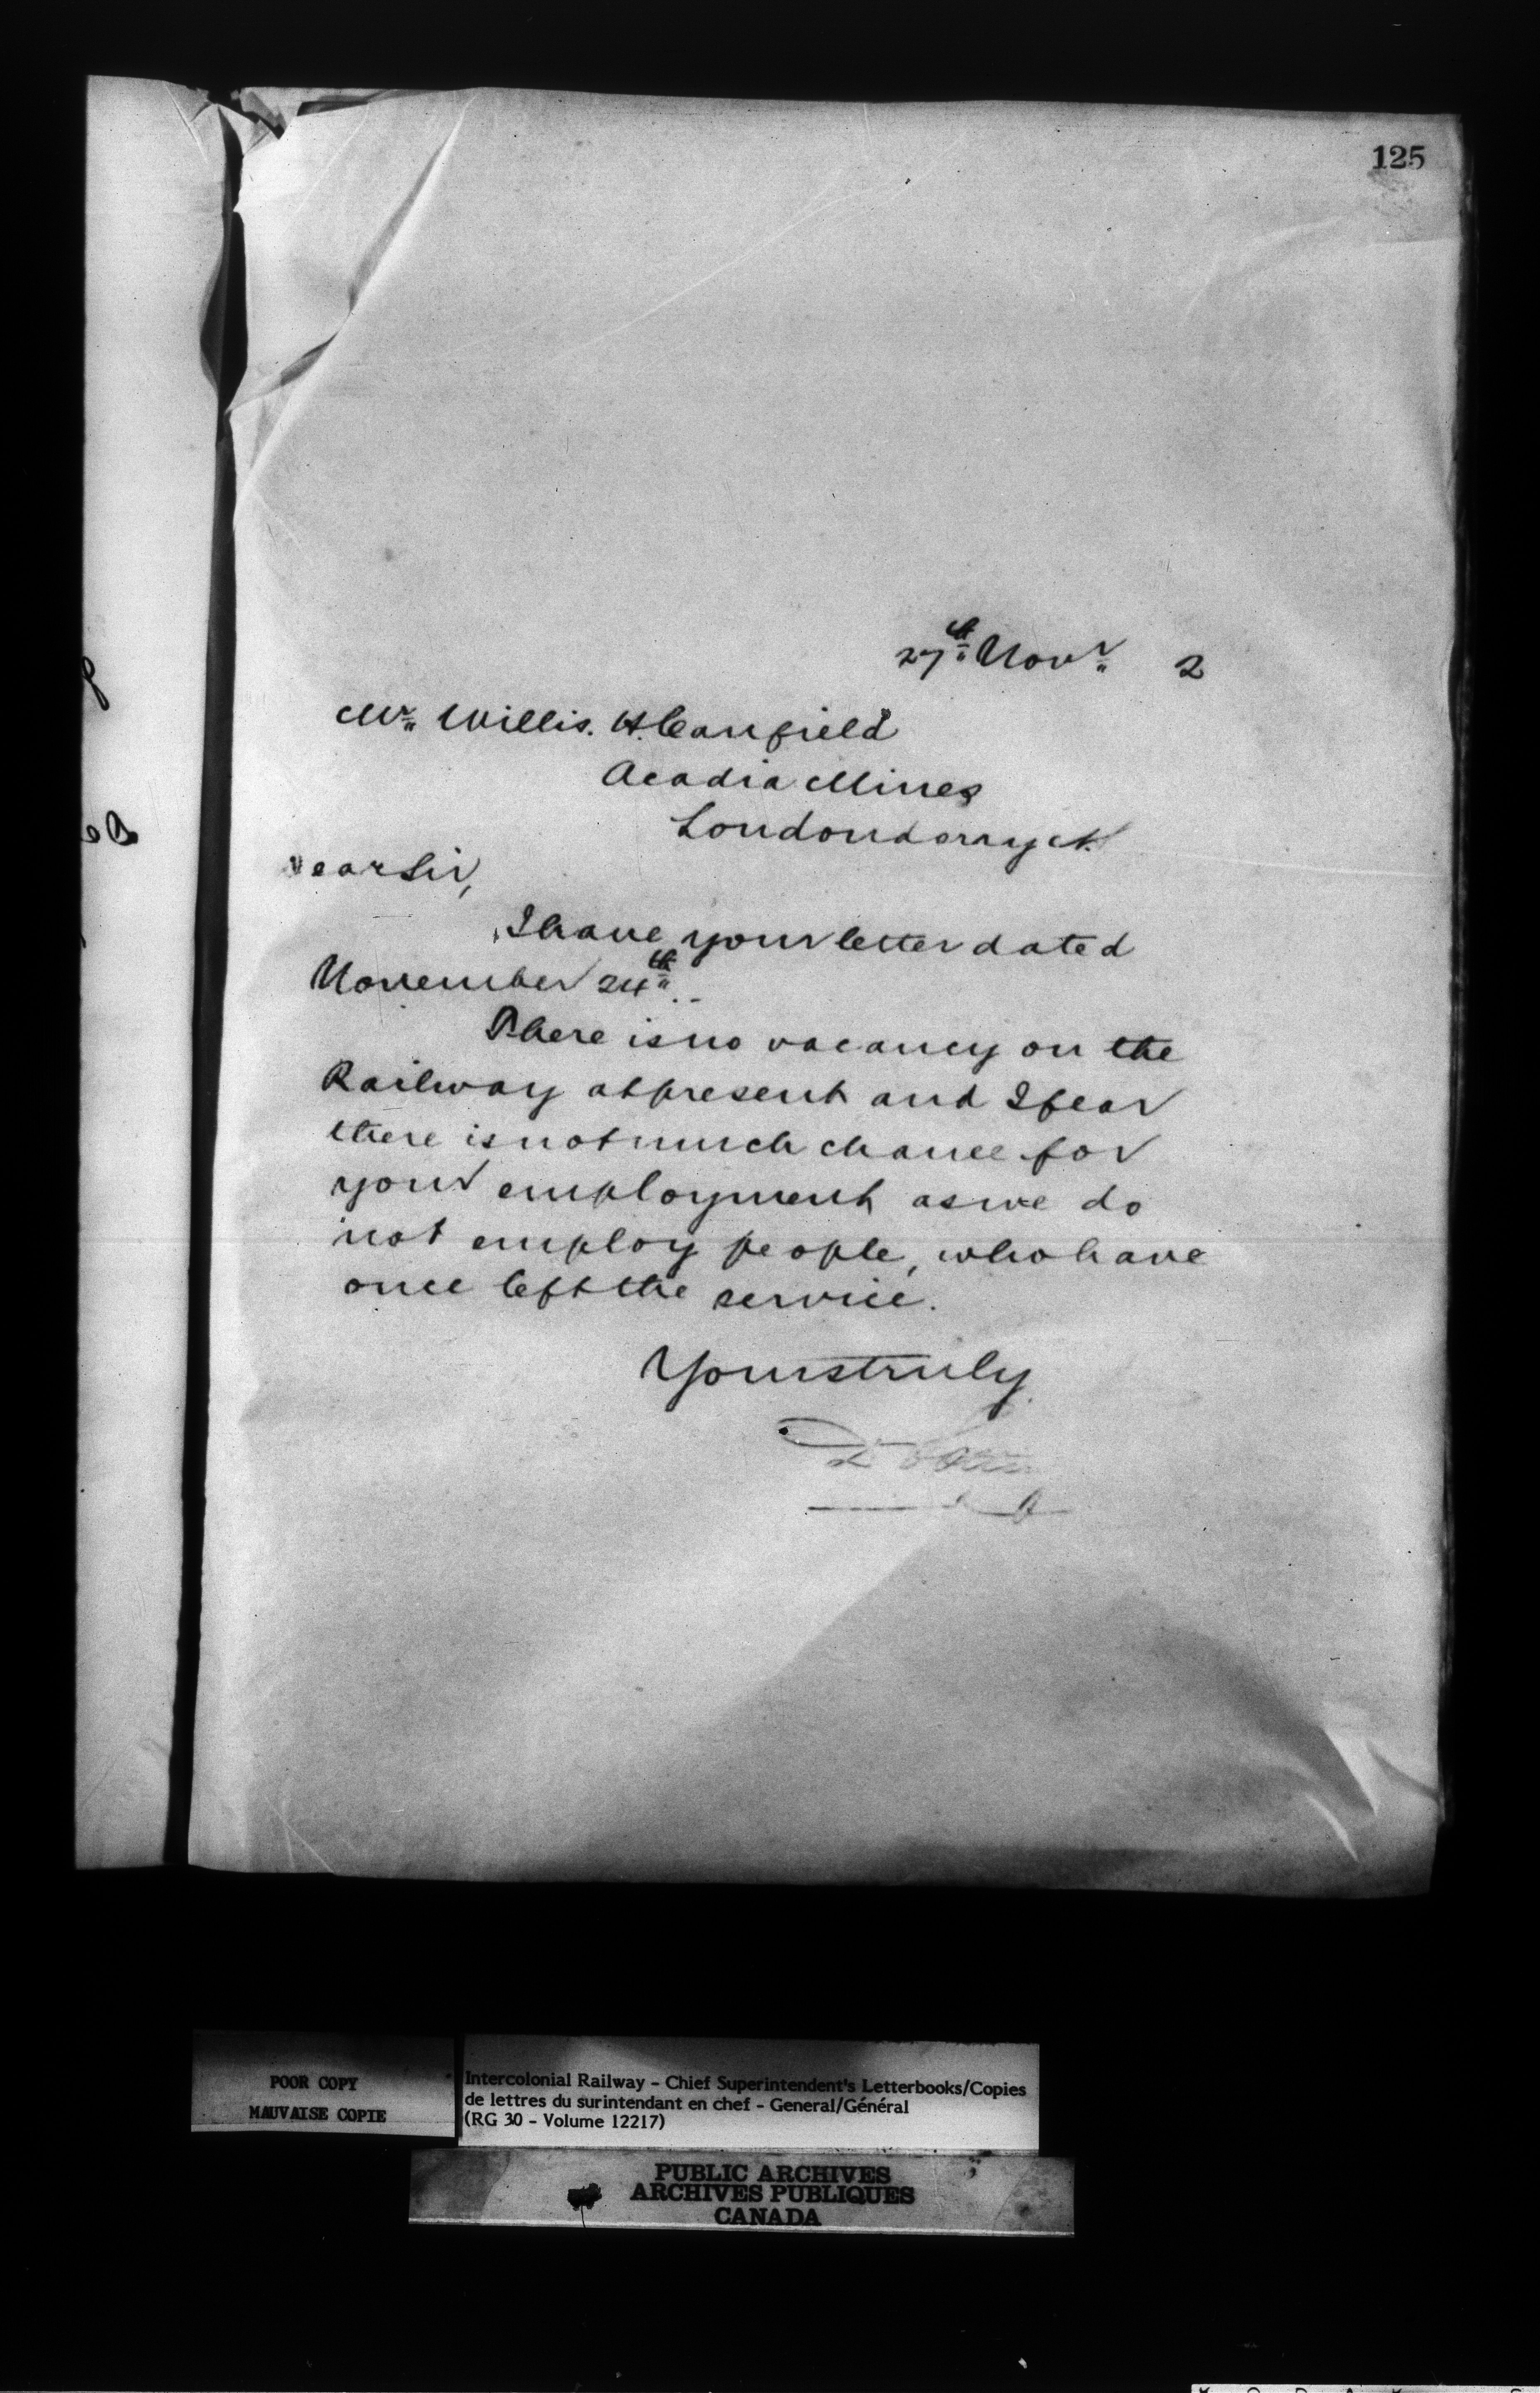 125
27th Novr 2
Mr Willis. H. Canfield
Acadia Mines
Londonderry N.
ear Sir,
I have your letter dated
November 24th.
There is no vacancy on the
Railway at present and I fear
there is not much chance for
your employment as we do
not employ people, who have
once left the service.
Yours truly
POOR COPY
MAUVAISE COPIE
Intercolonial Railway - Chief Superintendent's Letterbooks/Copies
de lettres du surintendant en chef - General/Général
(RG 30 - Volume 12217)
PUBLIC ARCHIVES
ARCHIVES PUBLIQUES
CANADA